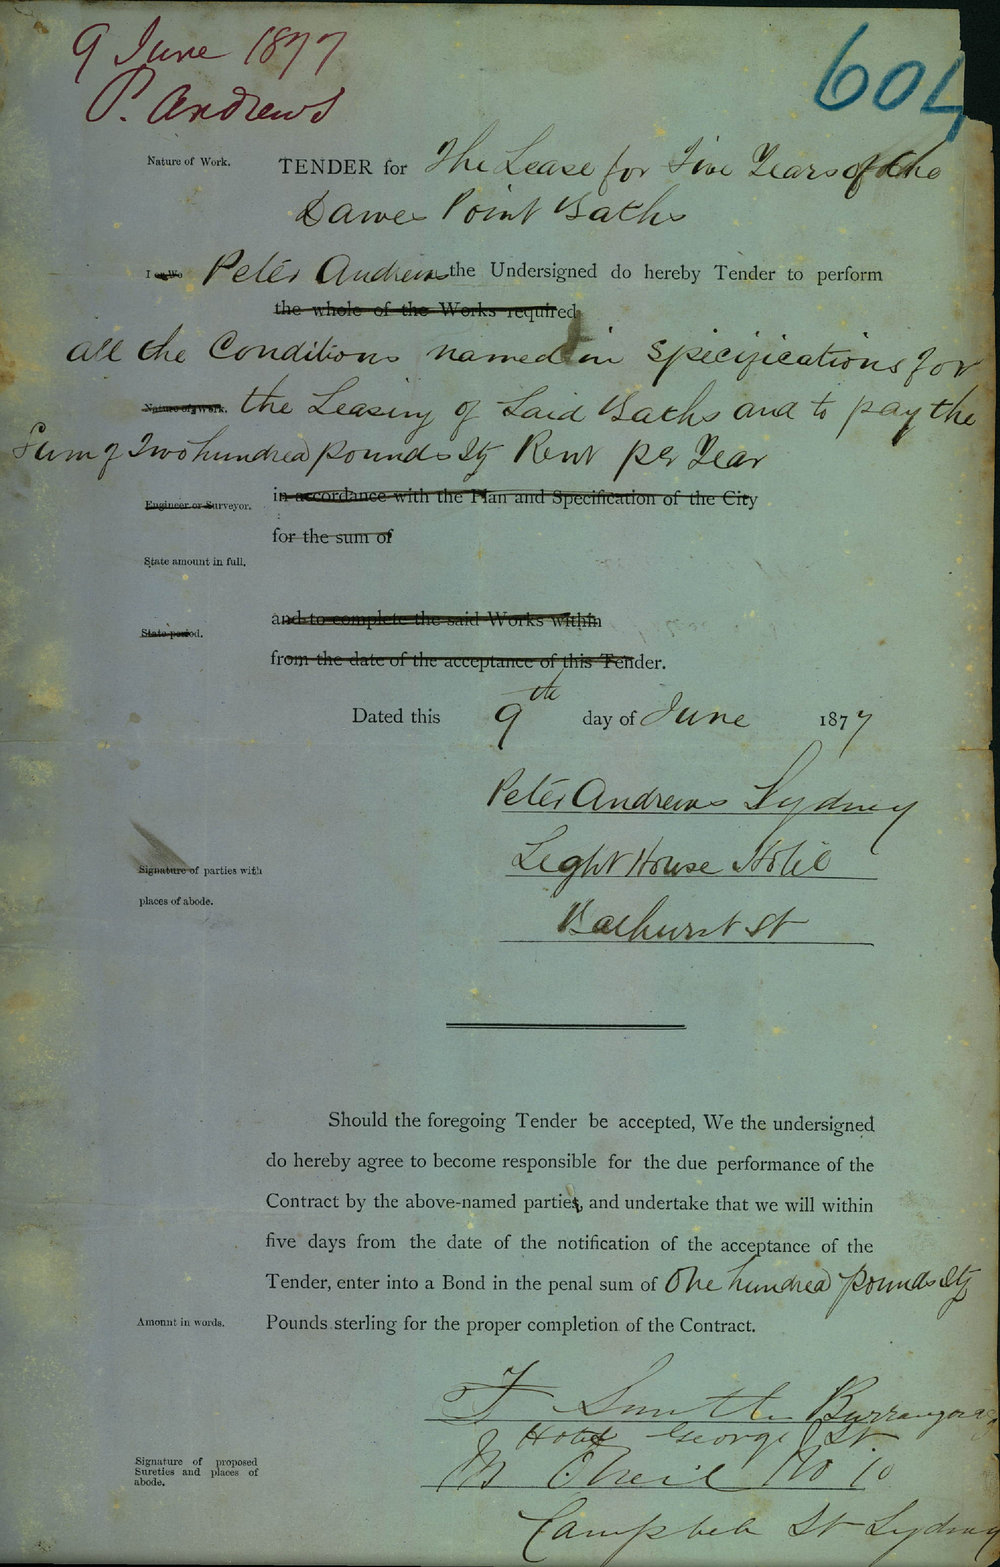 9 June 1877
P. Andrews
604
Nature of Work. TENDER for The Lease for Five Years of the
Dawes Point Baths
I or We Peter Andrews the Undersigned do hereby Tender to perform
the whole of the Works required
all the Conditions named in Specifications for
Nature of Work. the Leasing of Said Baths and to pay the
Sum of Two hundred pounds Stg Rent per Year
Engineer or Surveyor. in accordance with the Plan and Specification of the City
for the sum of
State amount in full.
and to complete the said Works within
State period.
from the date of the acceptance of this Tender.
Dated this 9th day of June 1877
Peter Andrews Sydney
Light House Hotel
Signature of parties with
places of abode.
Bathurst St
Should the foregoing Tender be accepted, We the undersigned
do hereby agree to become responsible for the due performance of the
Contract by the above-named parties, and undertake that we will within
five days from the date of the notification of the acceptance of the
Tender, enter into a Bond in the penal sum of One hundred pounds Stg
Amount in words. Pounds sterling for the proper completion of the Contract.
F Smith Burrangong
Hotel George St
Signature of proposed
Sureties and places of
abode.
M O'Neil No 10
Campbell St Sydney